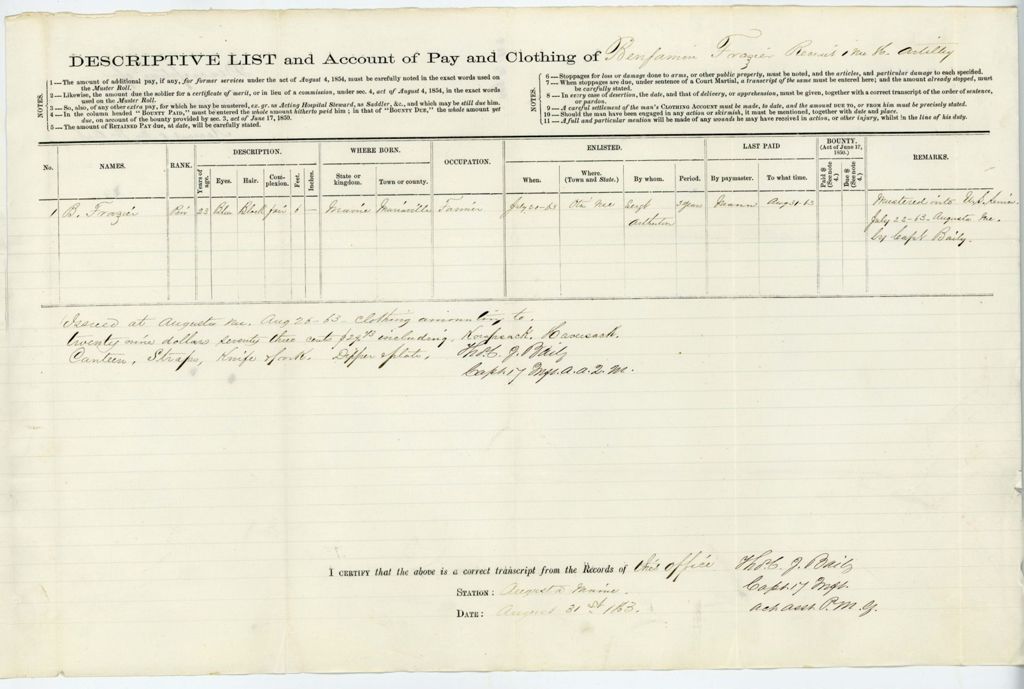 DESCRIPTIVE LIST and Account of Pay and Clothing of Benjamin Frazier Recruit 1 Me H. Artillery
NOTES.
1—The amount of additional pay, if any, for former services under the act of August 4, 1854, must be carefully noted in the exact words used on
the Muster Roll.
2—Likewise, the amount due the soldier for a certificate of merit, or in lieu of a commission, under sec. 4, act of August 4, 1854, in the exact words
used on the Muster Roll.
3—So, also, of any other extra pay, for which he may be mustered, ex. gr. as Acting Hospital Steward, as Saddler, &c., and which may be still due him.
4—In the column headed "BOUNTY PAID," must be entered the whole amount hitherto paid him; in that of "BOUNTY DUE," the whole amount yet
due, on account of the bounty provided by sec. 3, act of June 17, 1850.
5—The amount of RETAINED PAY due, at date, will be carefully stated.
NOTES.
6—Stoppages for loss or damage done to arms, or other public property, must be noted, and the articles, and particular damage to each specified.
7—When stoppages are due, under sentence of a Court Martial, a transcript of the same must be entered here; and the amount already stopped, must
be carefully stated.
8—In every case of desertion, the date, and that of delivery, or apprehension, must be given, together with a correct transcript of the order of sentence,
or pardon.
9—A careful settlement of the man's CLOTHING ACCOUNT must be made, to date, and the amount DUE TO, or FROM him must be precisely stated.
10—Should the man have been engaged in any action or skirmish, it must be mentioned, together with date and place.
11—A full and particular mention will be made of any wounds he may have received in action, or other injury, whilst in the line of his duty.
No. NAMES. RANK. DESCRIPTION. WHERE BORN. OCCUPATION. ENLISTED. LAST PAID BOUNTY. (Act of June 17, 1850.) REMARKS.
Years of age. Eyes. Hair. Complexion. Feet. Inches. State or kingdom. Town or county. When. Where. (Town and State.) By whom. Period. By paymaster. To what time. Paid $ (See note 4.) Due $ (See note 4.)
1 B. Frazier Priv 23 Blue Black fair 6 — Maine Mariaville Farmer July 20-63 Me Sergt 3 years Mann Aug 31-63 Mustered into U.S. Service
July 22-63. Augusta Me.
by Capt Baily.
Issued at Augusta Me. Aug 26-63 Clothing amounting to
twenty nine dollars seventy three cents including, Knapsack, Haversack.
Canteen, Straps, Knife & fork. Dipper & plate.
Thos. J. Baily
Capt. 17 Inf. a. a. Q. M.
I CERTIFY that the above is a correct transcript from the Records of this office
STATION: Augusta Maine.
DATE: August 31st 1863.
Thos. J. Baily
Capt. 17 Inf.
act. asst. P. M. G.